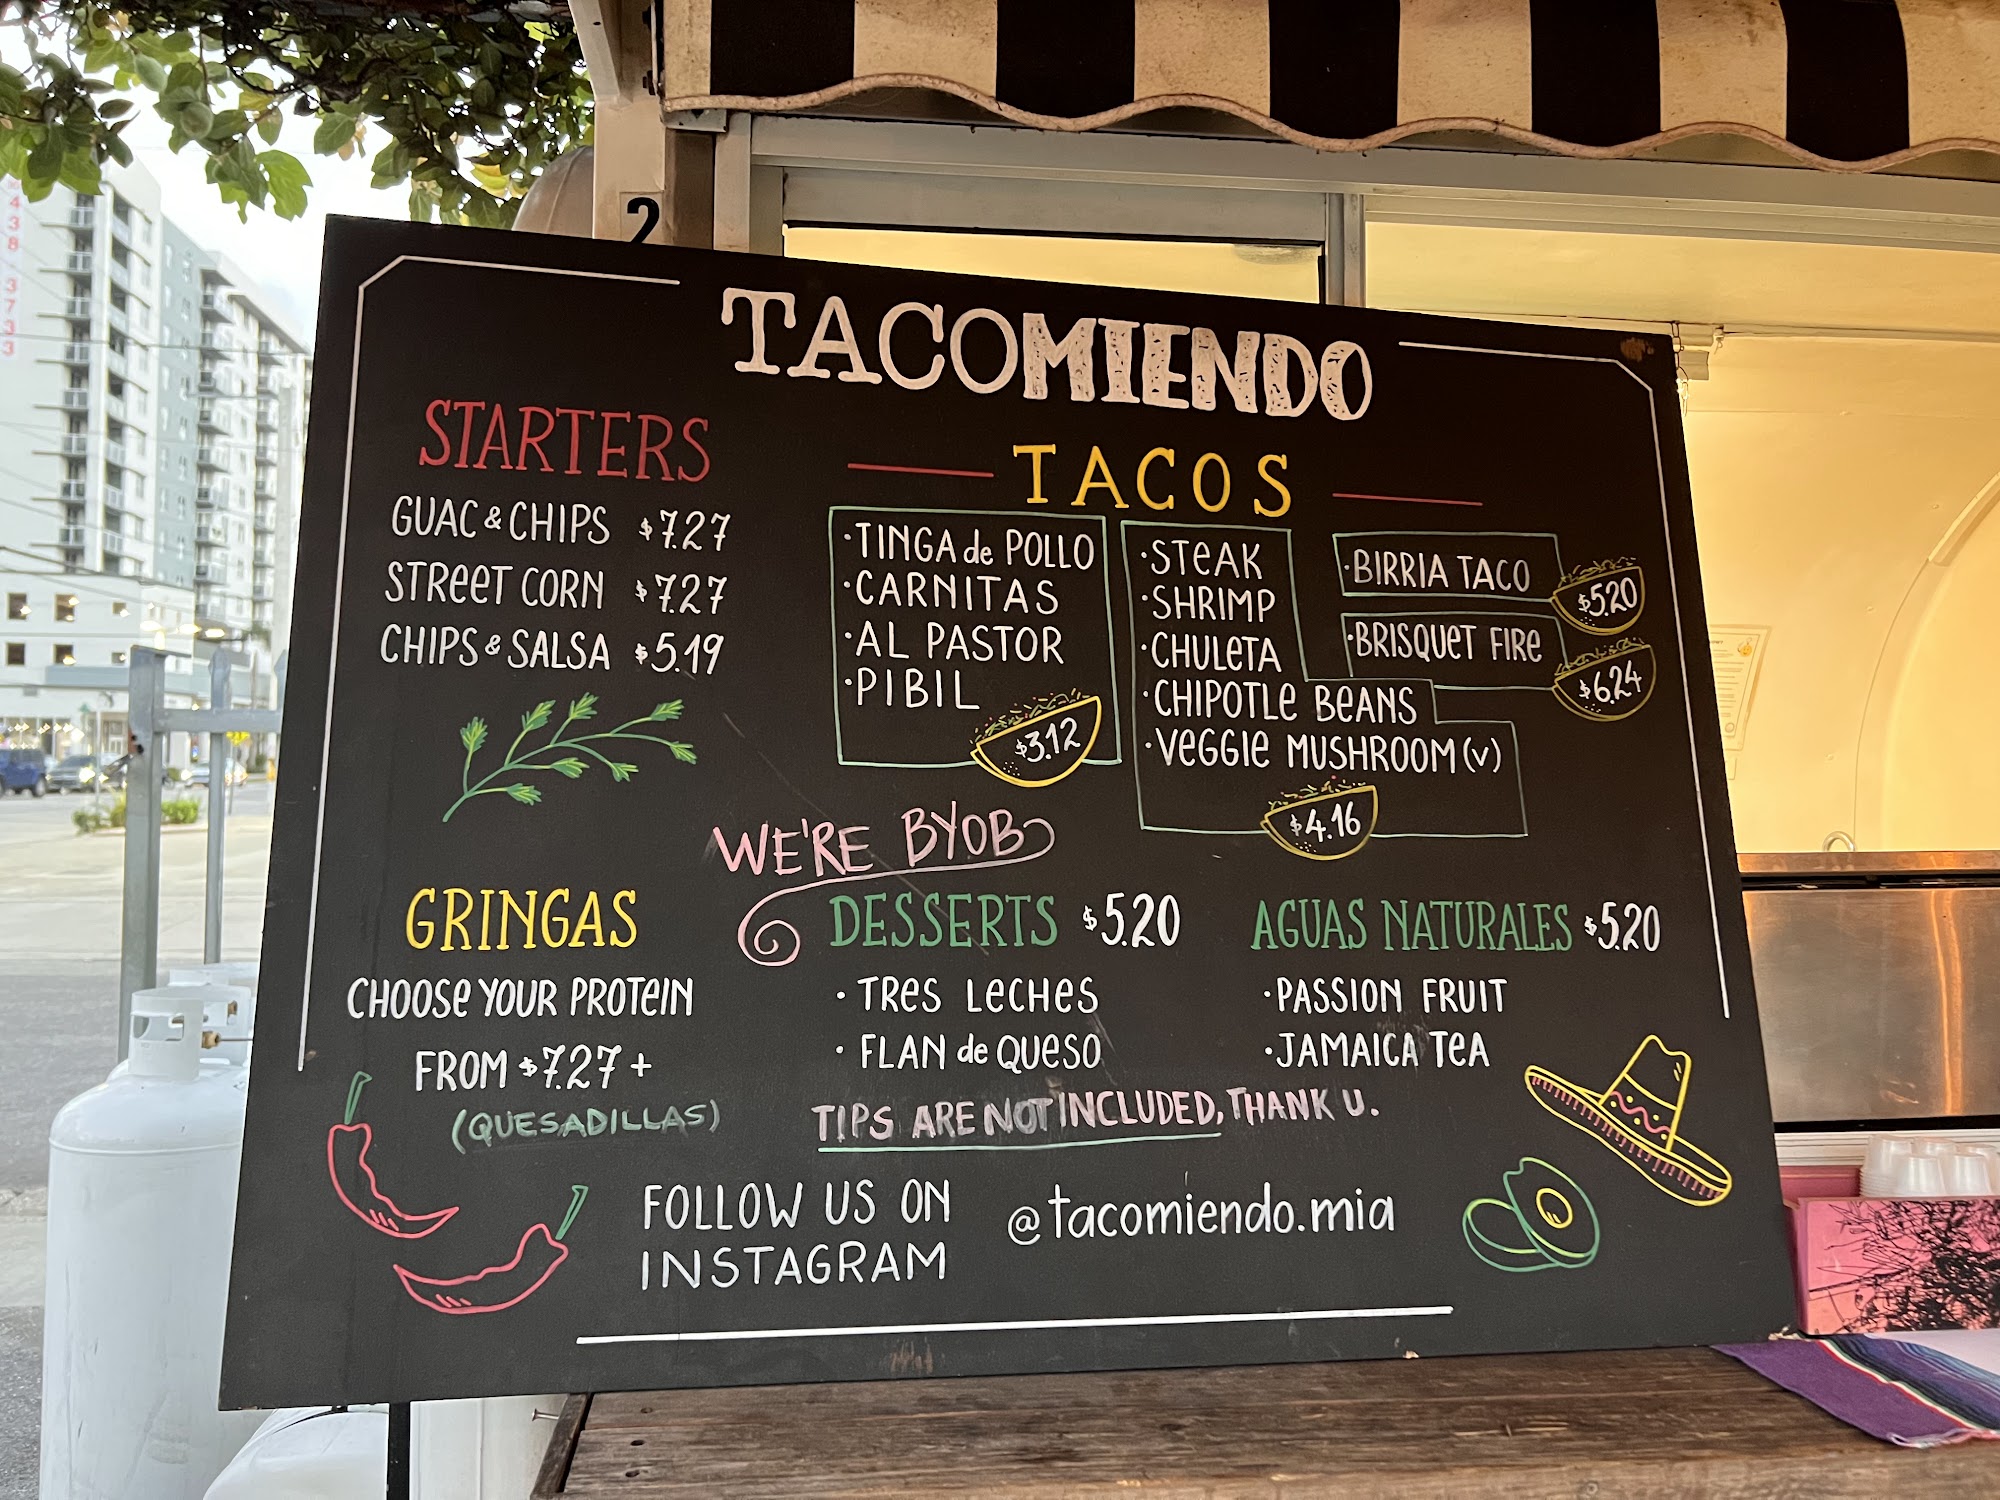 2
TACOMIENDO
STARTERS
GUAC & CHIPS $7.27
STREET CORN $7.27
CHIPS & SALSA $5.19
TACOS
·TINGA de POLLO
·CARNITAS
·AL PASTOR
·PIBIL
$3.12
·STEAK
·SHRIMP
·CHULETA
·CHIPOTLE BEANS
·VEGGIE MUSHROOM (V)
$4.16
·BIRRIA TACO
$5.20
·BRISQUET FIRE
$6.24
WE'RE BYOB
GRINGAS
CHOOSE YOUR PROTEIN
FROM $7.27 +
(QUESADILLAS)
DESSERTS $5.20
· TRES LECHES
· FLAN de QUESO
AGUAS NATURALES $5.20
·PASSION FRUIT
·JAMAICA TEA
TIPS ARE NOT INCLUDED, THANK U.
FOLLOW US ON
INSTAGRAM
@tacomiendo.mia